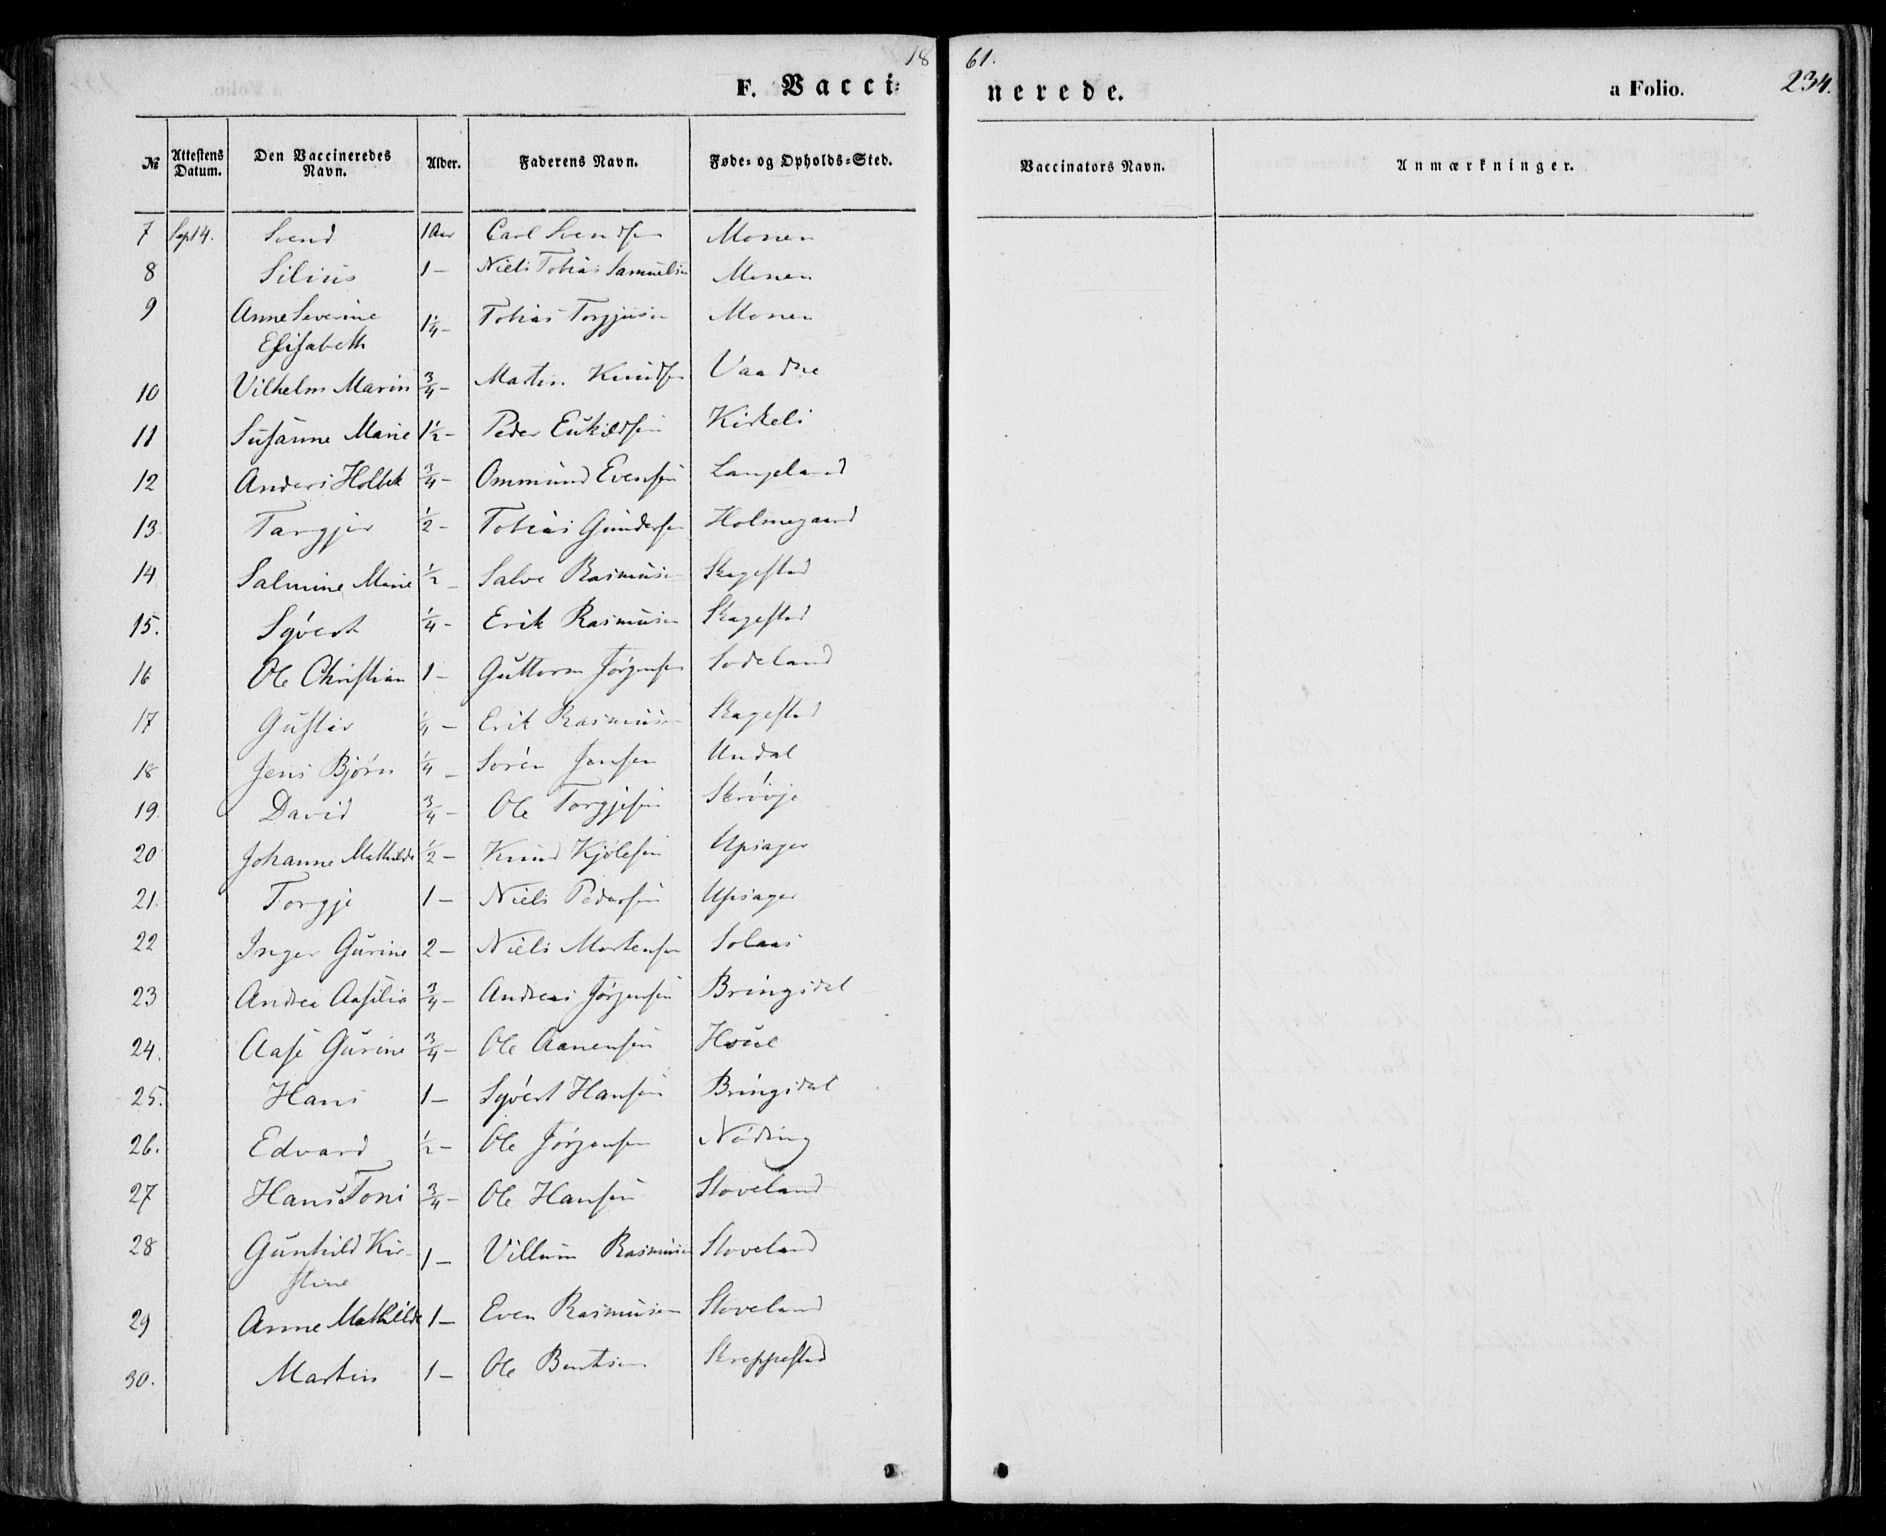 1861.
F. Vaccinerede. a Folio. 234.
№ Attestens Datum. Den Vaccineredes Navn. Alder. Faderens Navn. Føde- og Opholds-Sted. Vaccinators Navn. Anmærkninger.
7 Sept 4. Svend 1 Aar Carl Svendsen Monen
8 Silius 1 – Niels Tobias Samuelsen Monen
9 Anne Severine 1¼ – Tobias Torgjusen Monen
Elisabeth
10 Vilhelm Marin ¾ – Martin Knudsen Vaadne
11 Susanne Marie 1½ – Peder Eskildsen Kirkeli
12 Anders Holbek ¾ – Ommund Evensen Langeland
13 Targjer ½ – Tobias Gundersen Holmegaard
14 Salmine Marie ½ – Salve Rasmusen Skagestad
15. Syvert ¼ – Erik Rasmusen Skagestad
16 Ole Christian 1 – Guttorm Jørgensen Sodeland
17 Gustav ¼ – Erik Rasmusen Skagestad
18 Jens Bjørn ¼ – Søren Jensen Undal
19. David ¾ – Ole Torgjesen Skrövje
20 Johanne Mathilde ½ – Knud Kjølesen Upsager
21. Torgje 1 – Niels Pedersen Upsager
22 Inger Gurine 2 – Niels Mortensen Solaas
23 Andrea Aasilia ¾ – Andreas Jørgensen Bringsdal
24. Aase Gurine ¾ – Ole Aanensen
25. Hans 1 – Syvert Hansen Bringsdal
26. Edvard ½ – Ole Jørgensen Nöding
27 Hans Toni ¾ – Ole Hansen Stoveland
28 Gunhild Kir- 1 – Villum Rasmusen Stoveland
stine
29 Anne Mathilde 1 – Even Rasmusen Stoveland
30. Martin 1 – Ole Bentsen Skreppestad